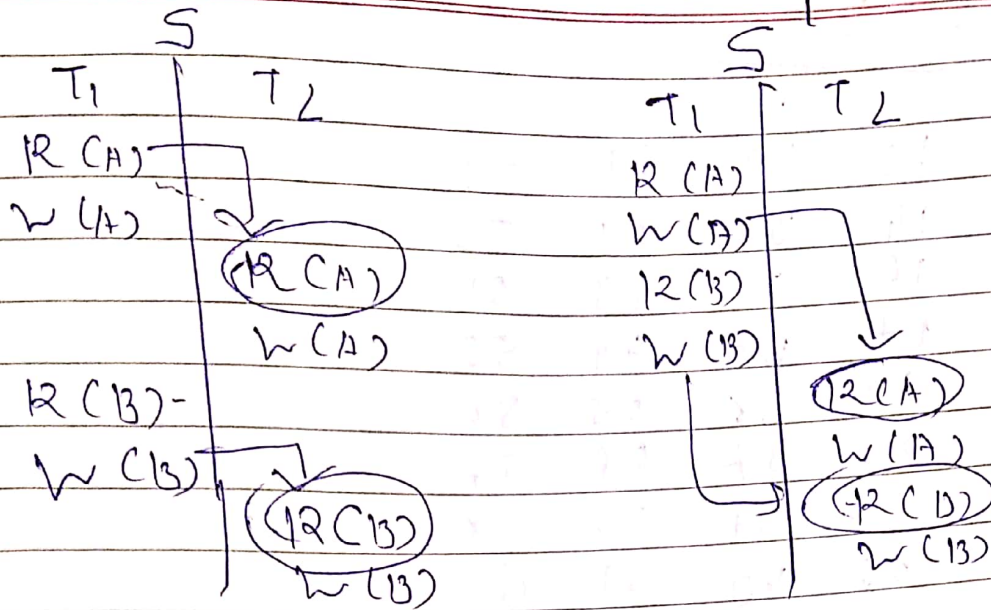 S
T1 T2
R(A)
W(A)
R(A)
W(A)
R(B)-
W(B)
R(B)
W(B)
S
T1 T2
R(A)
W(A)
R(B)
W(B)
R(A)
W(A)
R(B)
W(B)